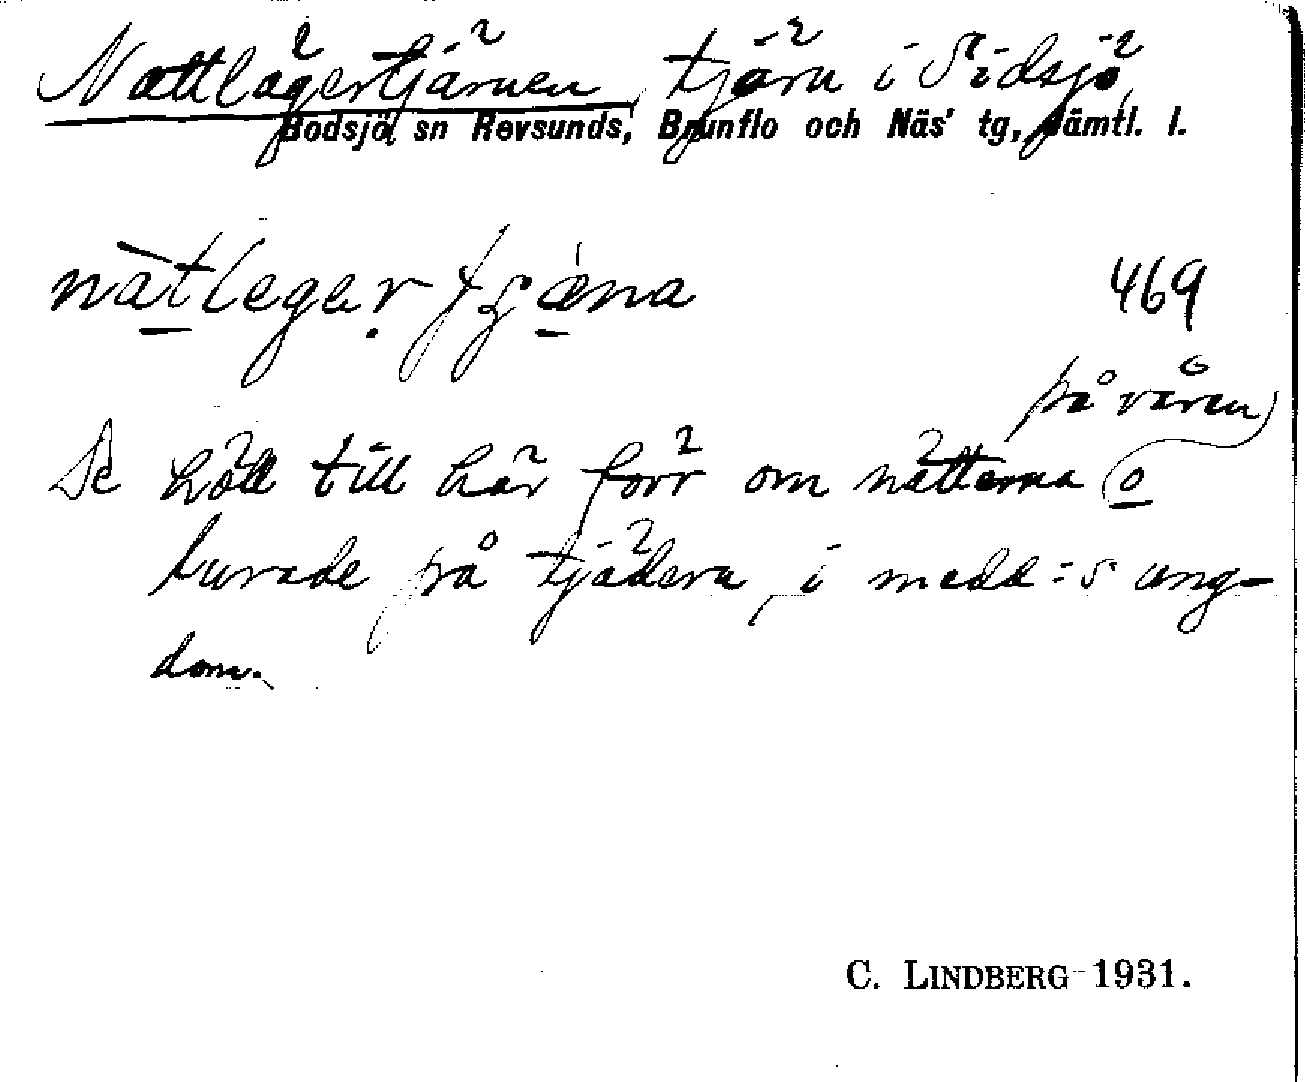 Nattlägertjärnen, tjärn i Sidsjö,
Bodsjö, sn Revsunds, Brunflo och Näs' tg, Jämtl. l.
469
på våren
De höll till här förr om nätterna o
lurade på tjädern, i medd:s ung-
dom.
C. LINDBERG 1931.